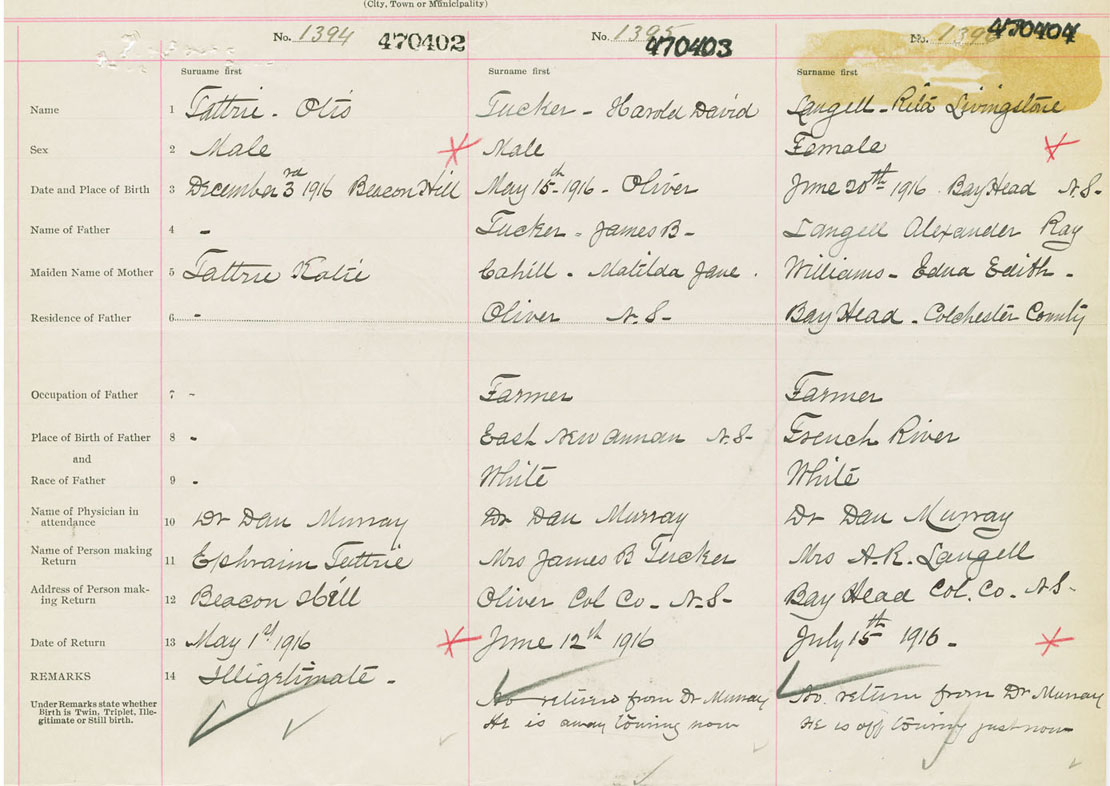 (City, Town or Municipality)
No. 1394 470402 No. 1395 470403 No. 139 470404
Surname first Surname first Surname first
Name 1 Tattrie - Otis Tucker - Harold David Langell - Rita Livingstone
Sex 2 Male Male Female
Date and Place of Birth 3 December 3rd 1916 Beacon Hill May 15th 1916 - Oliver June 20th 1916 Bay Head N.S-
Name of Father 4 - Tucker - James B- Langell Alexander Ray
Maiden Name of Mother 5 Tattrie Katie Cahill - Matilda Jane . Williams - Edna Edith -
Residence of Father 6 - Oliver N.S- Bay Head - Colchester County
Occupation of Father 7 - Farmer Farmer
Place of Birth of Father 8 - East New annan N.S- French River
and
Race of Father 9 - White White
Name of Physician in
attendance 10 Dr Dan Murray Dr Dan Murray Dr Dan Murray
Name of Person making
Return 11 Ephraim Tattrie Mrs James B Tucker Mrs A.R. Langell
Address of Person mak-
ing Return 12 Beacon Hill Oliver Col Co - N-S- Bay Head Col. Co - N-S-
Date of Return 13 May 1st 1916 June 12th 1916 July 15th 1916 -
REMARKS 14 Illigetimate -
Under Remarks state whether
Birth is Twin, Triplet, Ille-
gitimate or Still birth.
No return from Dr Murray No return from Dr Murray
He is away touring now He is off touring just now